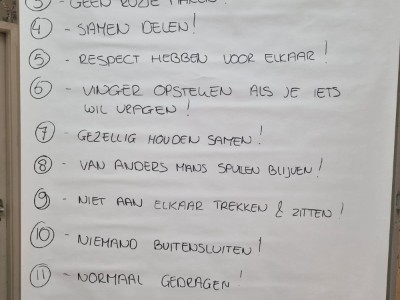 3 - GEEN RUZIE MAKEN!
4 - SAMEN DELEN!
5 - RESPECT HEBBEN VOOR ELKAAR!
6 - VINGER OPSTELLEN ALS JE IETS
WIL VRAGEN!
7 - GEZELLIG HOUDEN SAMEN!
8 - VAN ANDERS MANS SPULEN BLIJVEN!
9 - NIET AAN ELKAAR TREKKEN & ZITTEN!
10 - NIEMAND BUITENSLUITEN!
11 - NORMAAL GEDRAGEN!